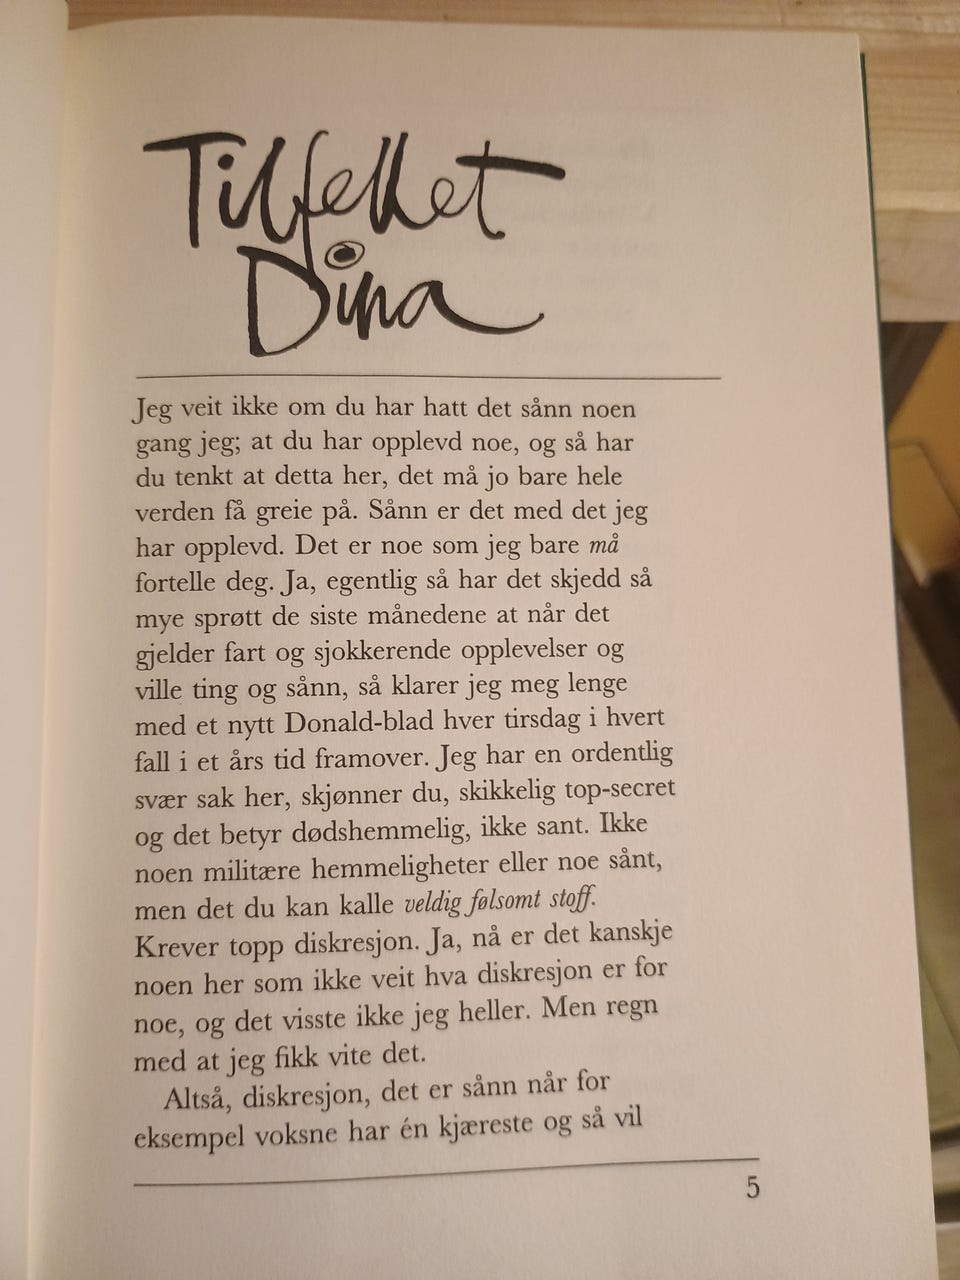 Tilfellet
Dina
Jeg veit ikke om du har hatt det sånn noen
gang jeg; at du har opplevd noe, og så har
du tenkt at detta her, det må jo bare hele
verden få greie på. Sånn er det med det jeg
har opplevd. Det er noe som jeg bare må
fortelle deg. Ja, egentlig så har det skjedd så
mye sprøtt de siste månedene at når det
gjelder fart og sjokkerende opplevelser og
ville ting og sånn, så klarer jeg meg lenge
med et nytt Donald-blad hver tirsdag i hvert
fall i et års tid framover. Jeg har en ordentlig
svær sak her, skjønner du, skikkelig top-secret
og det betyr dødshemmelig, ikke sant. Ikke
noen militære hemmeligheter eller noe sånt,
men det du kan kalle veldig følsomt stoff.
Krever topp diskresjon. Ja, nå er det kanskje
noen her som ikke veit hva diskresjon er for
noe, og det visste ikke jeg heller. Men regn
med at jeg fikk vite det.
Altså, diskresjon, det er sånn når for
eksempel voksne har én kjæreste og så vil
5